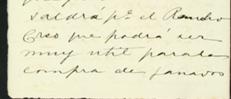 saldrá pª el Rancho
Creo que podrá ser
muy util para la
compra de ganados